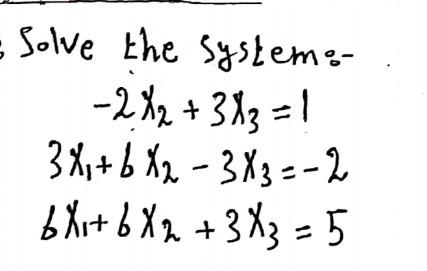 Solve the system:-
-2X₂ + 3X₃ = 1
3X₁+6X₂ - 3X₃ = -2
6X₁+6X₂ + 3X₃ = 5